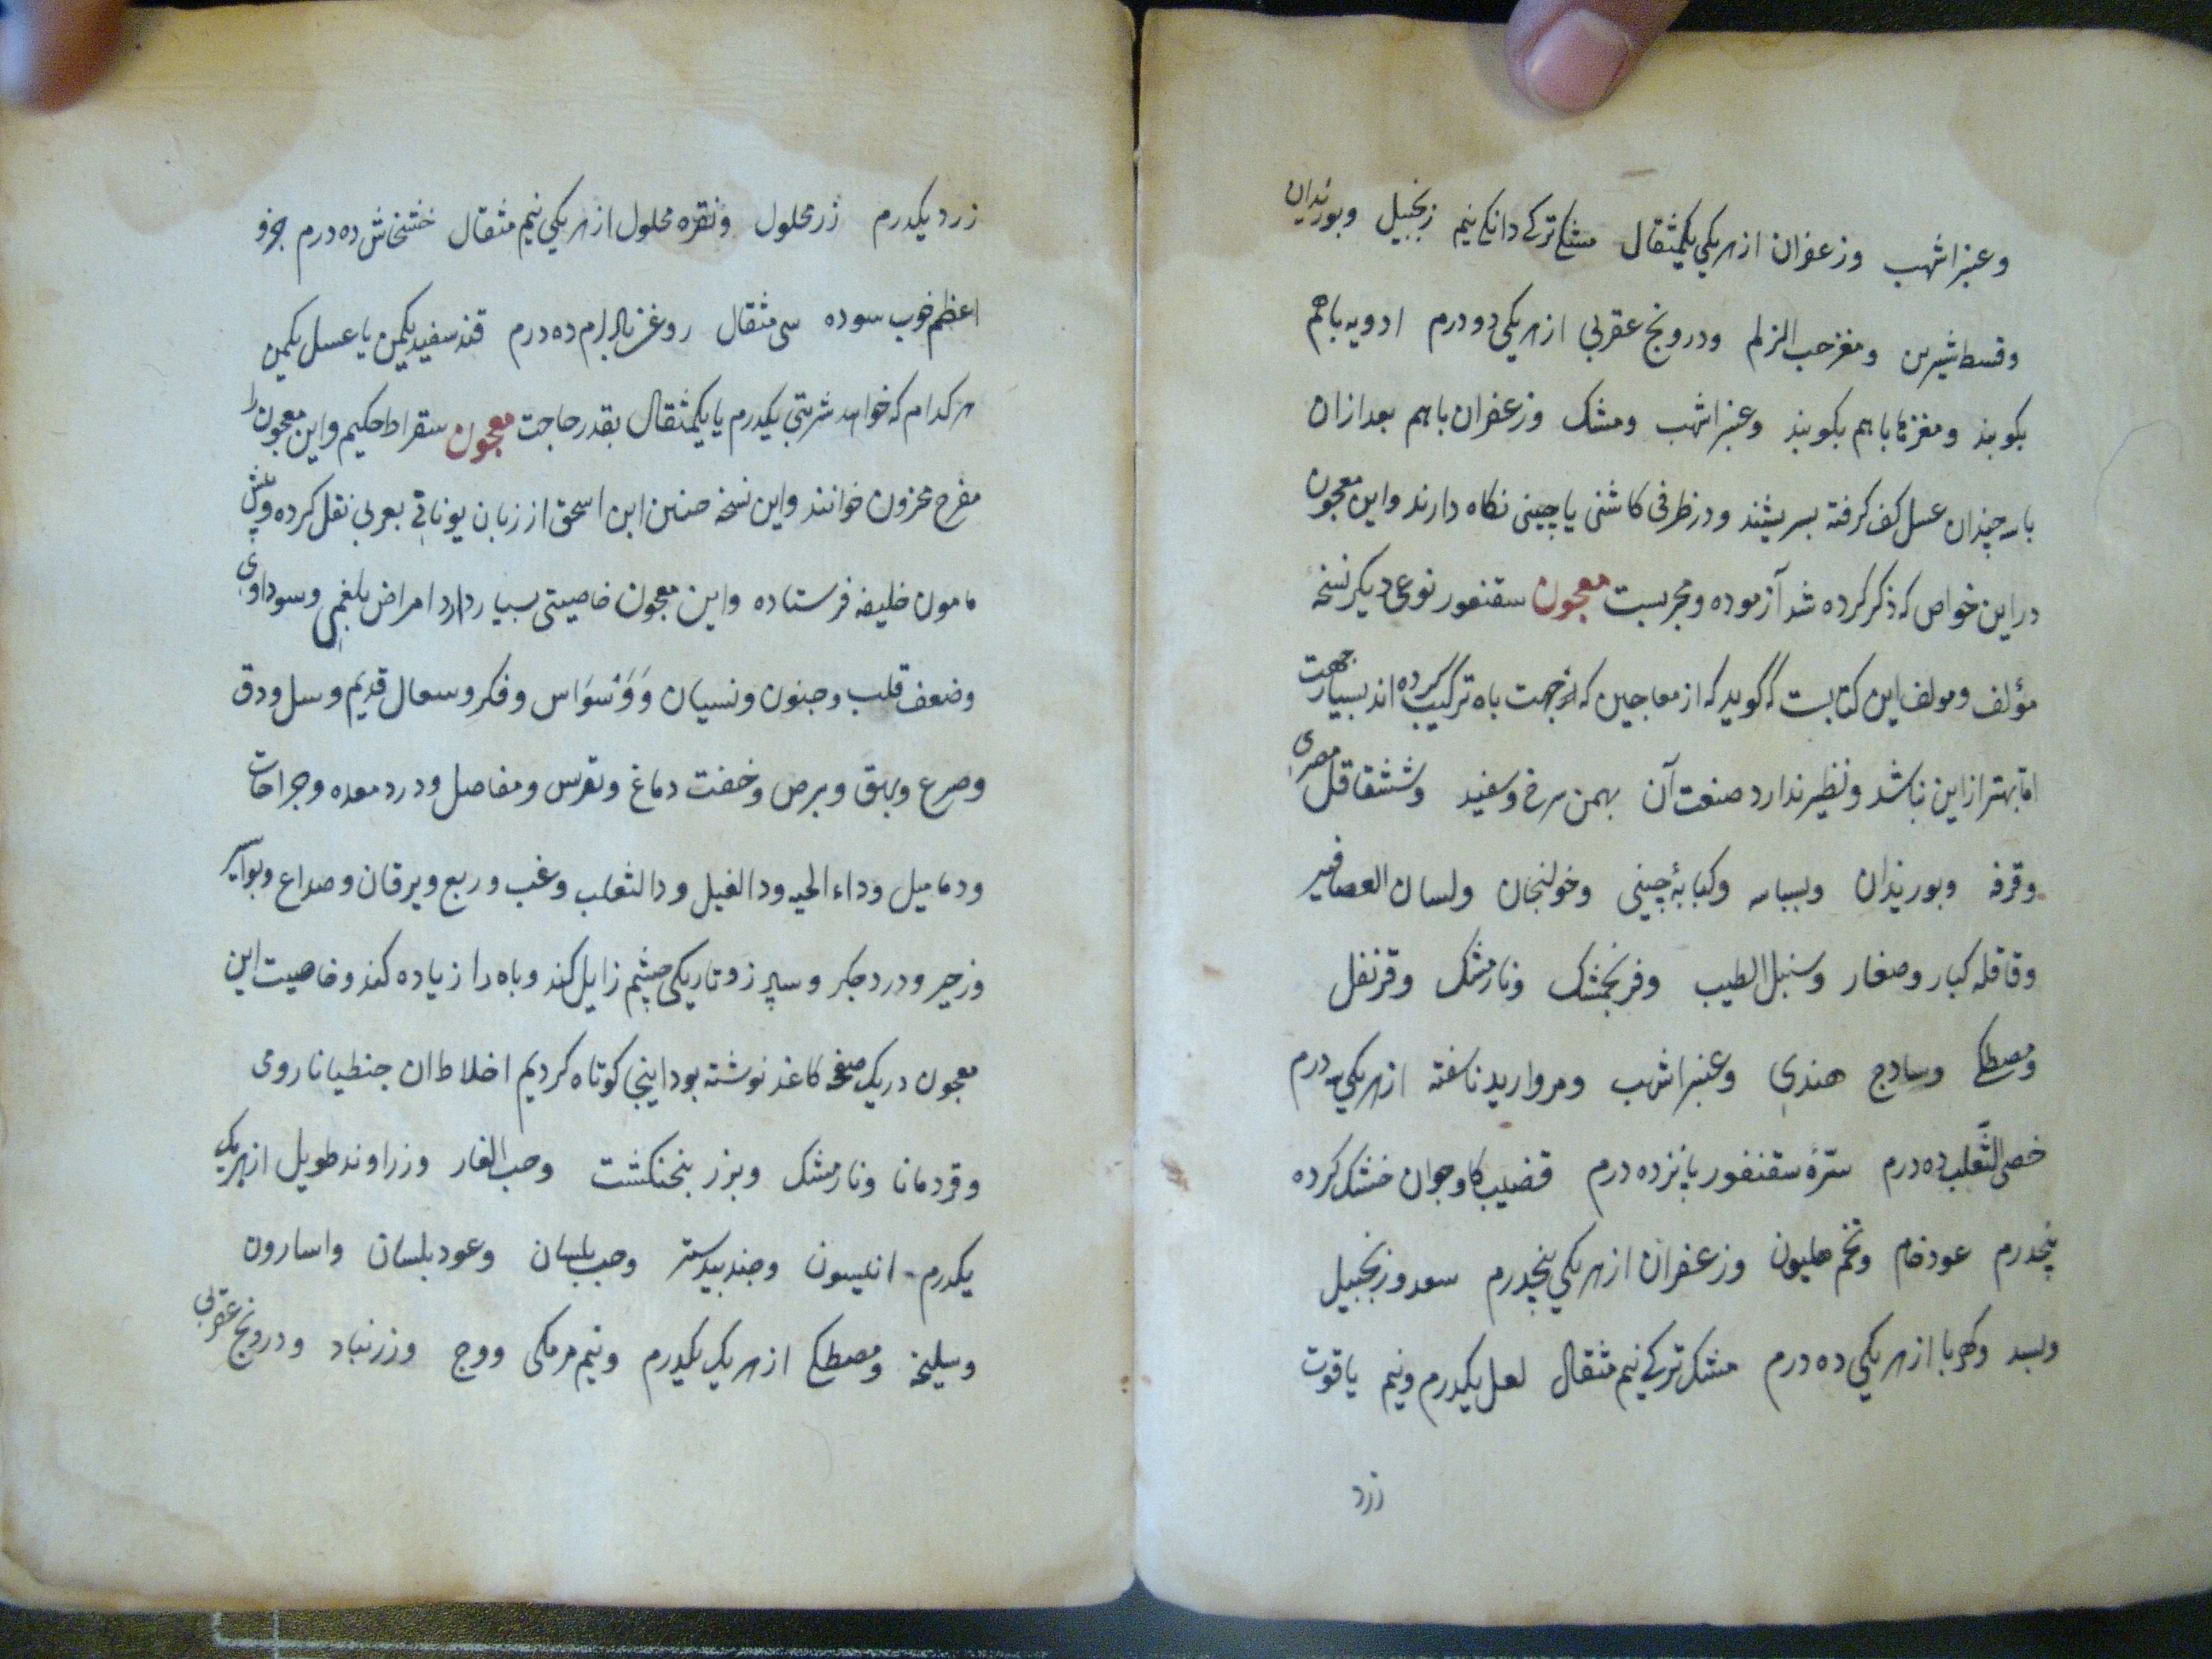 وعنبر اشهب وزعفران از هر یکی یکمثقال مشک ترکی دانکی نیم زنجبیل وبوزیدان
وقسط شیرین ومغز حب الزلم ودرونج عقربی از هر یکی دو درم ادویه باهم
بکوبند ومغزها باهم بکوبند وعنبر اشهب ومشک وزعفران باهم بعد ازان
با سه چندان عسل کف کرفته بسریشند ودر ظرفی کاشی یا چینی نکاه دارند واین معجون
در این خواص که ذکر کرده شد آزموده ومجربست معجون سقنقور نوعی دیکر نسخهٔ
مؤلف ومولف این کتابست که گوید که از معاجین که از جهت باه ترکیب کرده اند بسیار
اما بهتر از این نباشد ونظیر ندارد صنعت آن بهمن سرخ وسفید وششقاقل مصری
وقرفه وبوزیدان وبسباسه وکبابهٔ چینی وخولنجان ولسان العصافیر
وقاقله کبار وصغار وسنبل الطیب وفرنجمشک ونارمشک وقرنفل
ومصطکی وسادج هندی وعنبر اشهب ومروارید ناسفته از هر یکی سه درم
خصی الثعلب ده درم سرهٔ سقنقور پانزده درم قضیب کاو جوان خشک کرده
پنجدرم عود خام وتخم هلیون وزعفران از هر یکی پنجدرم سعد وزنجبیل
وبسد وکهربا از هر یکی ده درم مشک ترکی نیم مثقال لعل یکدرم ونیم یاقوت
زرد
زرد یکدرم زر محلول ونقره محلول از هر یکی نیم مثقال خشخاش ده درم جزو
اعظم خوب سوده سی مثقال روغن ده درم قند سفید یکمن یا عسل یکمن
هر کدام که خواهد شربتی یکدرم یا یکمثقال بقدر حاجت معجون سقراط حکیم واین معجون را
مفرح محزون خوانند واین نسخه حنین ابن اسحق از زبان یونانی بعربی نقل کرده وپیش
مامون خلیفه فرستاده واین معجون خاصیتی بسیار دارد امراض بلغمی وسوداوی
وضعف قلب وجنون ونسیان ووسواس وفکر وسعال قدیم وسل ودق
وصرع وبهق وبرص وخفت دماغ ونقرس ومفاصل ودرد معده وجراحات
ودمامیل وداء الحیه ودا الفیل ودا الثعلب وغب وربع ویرقان وصداع وبواسیر
وزحیر ودرد جکر وسپرز وتاریکی چشم زایل کند وباه را زیاده کند وخاصیت این
معجون در یک صفحه کاغذ نوشته بود اینجا کوتاه کردیم اخلاط ان جنطیانا رومی
وقردمانا ونارمشک وبزر بنجنکشت وحب الغار وزراوند طویل از هر یک
یکدرم انیسون وجندبیدستر وحب بلسان وعود بلسان واسارون
وسلیخه ومصطکی از هر یک یکدرم ونیم مرمکی ووج وزرنباد ودرونج عقربی